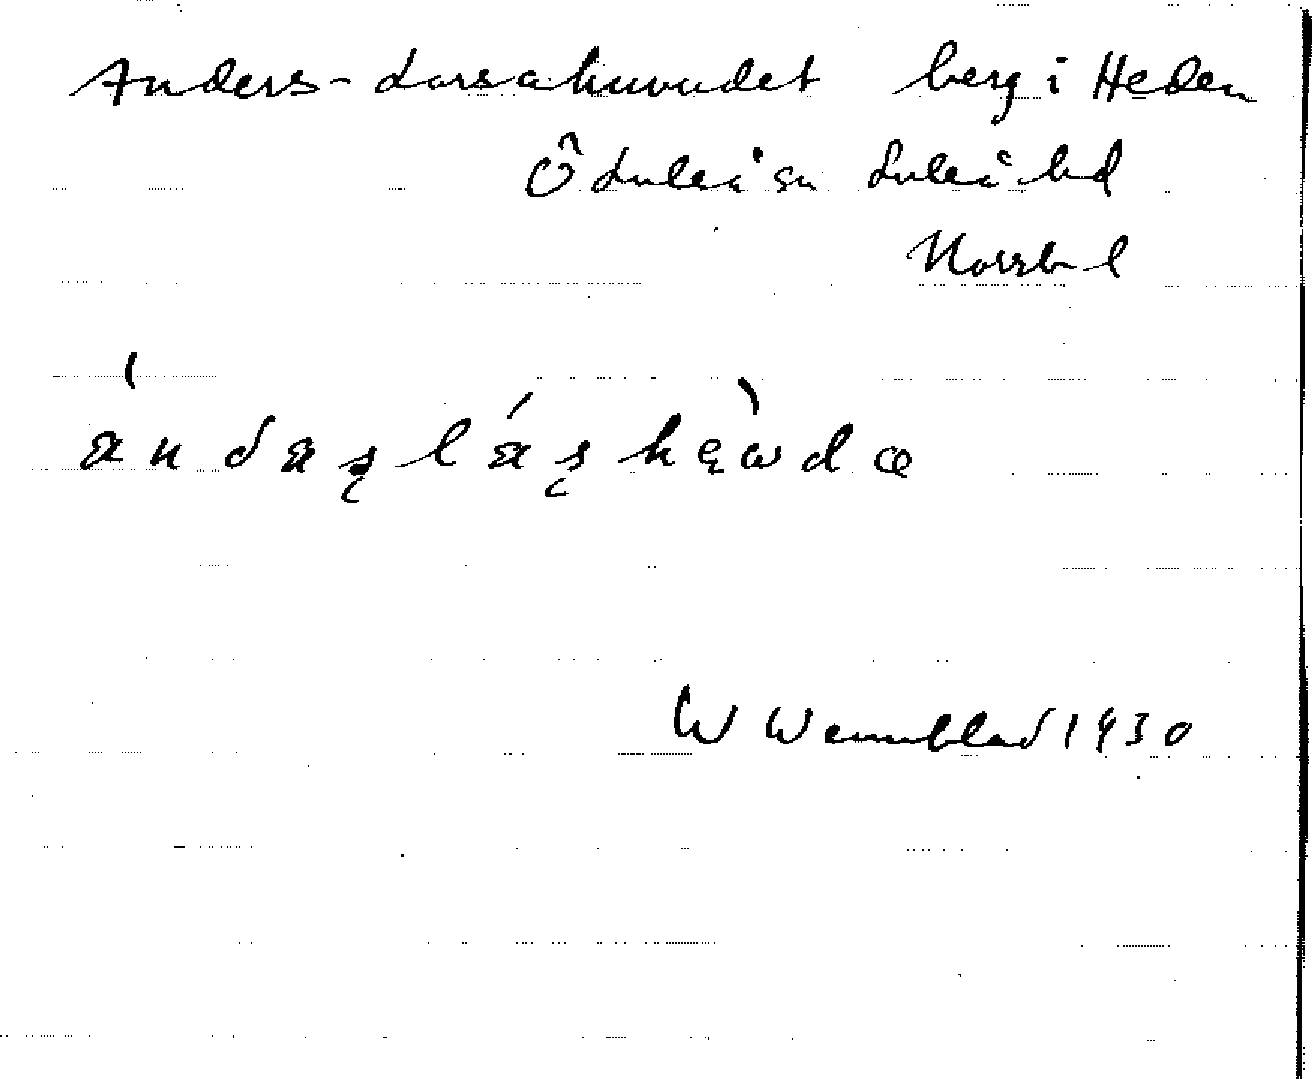 Anders-Larsahuvudet berg i Heden
Ö Luleå sn Luleå hd
Norrb l
andaşláş hęωdæ
W Wennblad 1930